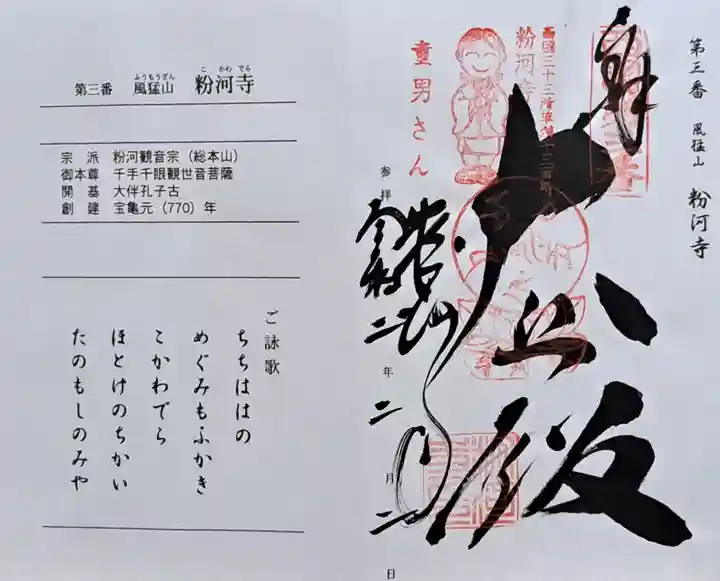 第三番 風猛山 粉河寺
ふうもうざん こかわでら
宗派 粉河観音宗（総本山）
御本尊 千手千眼観世音菩薩
開基 大伴孔子古
創建 宝亀元（770）年
ご詠歌
ちちははの
めぐみもふかき
こかわでら
ほとけのちかい
たのもしのみや
第三番 風猛山 粉河寺
奉
大悲殿
西国三十三所草創千三百年
粉河寺
童男さん
参拝 令和二年二月二日